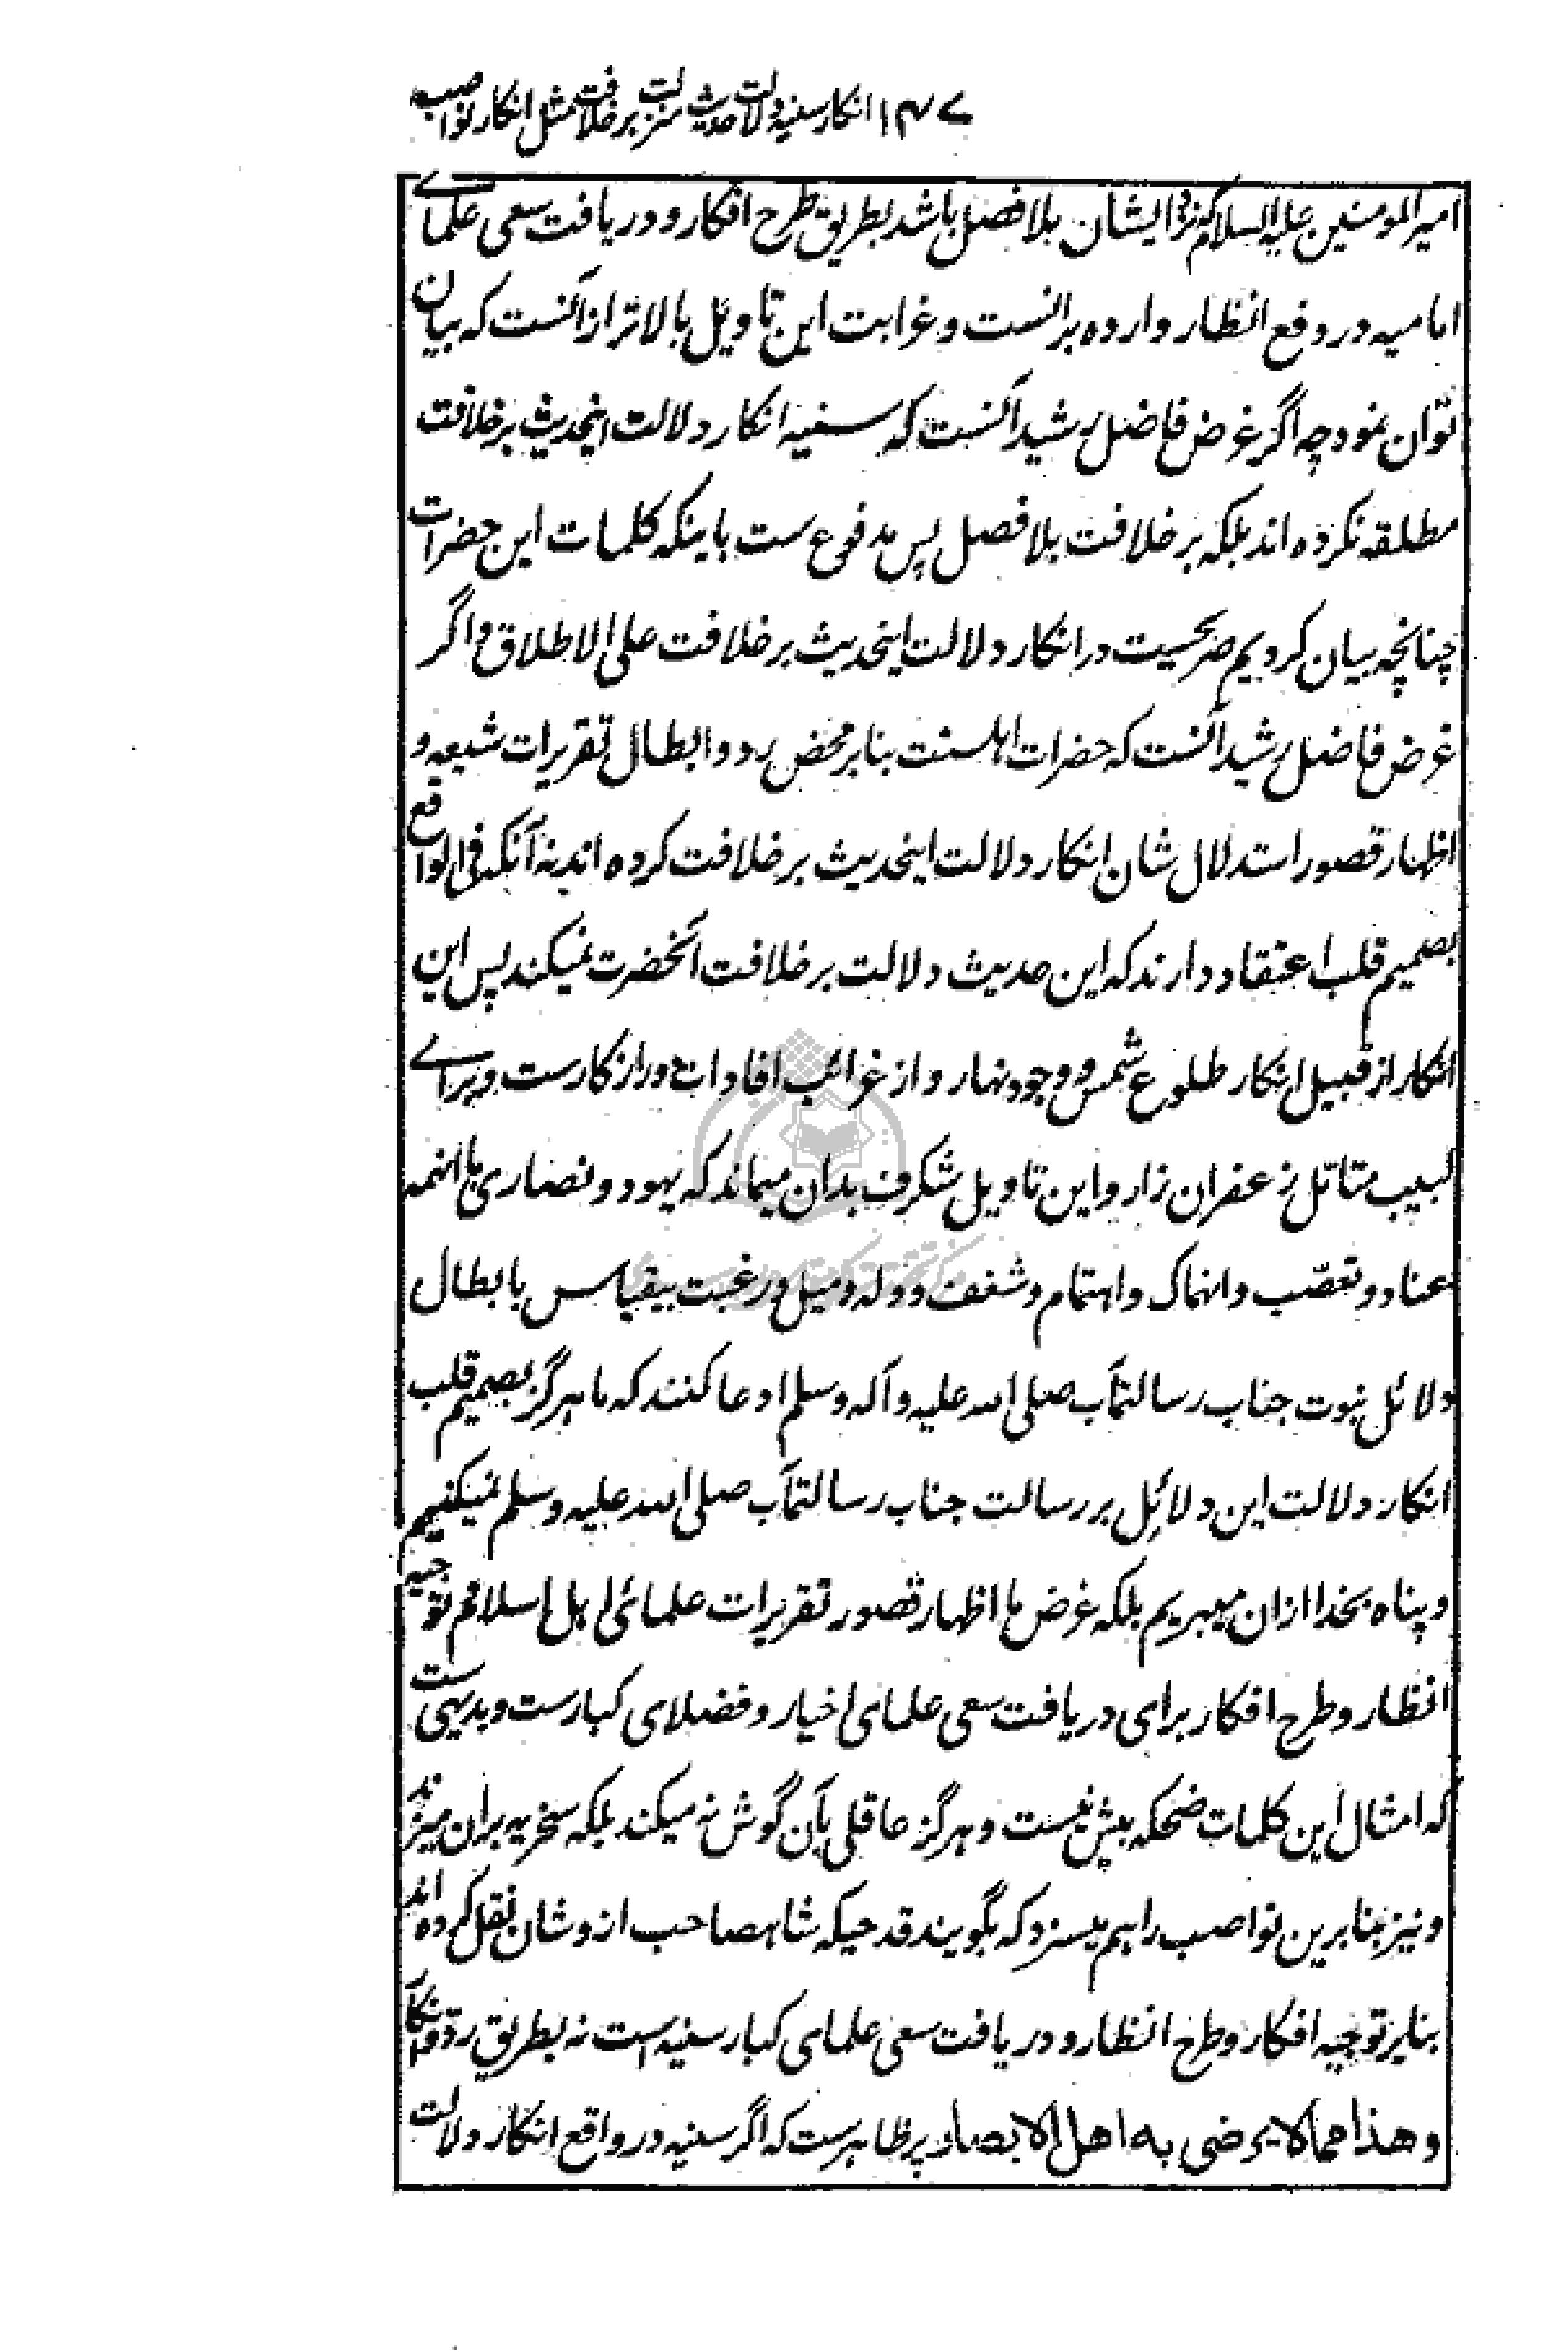 ۱۴۷ انکار سنیه دلالت حدیث منزلت بر خلافت مثل انکار نواصب
امیر المومنین علیه السلام نزد ایشان بلا فصل باشد بطریق طرح افکار و دریافت سعی علمای
امامیه در دفع انظار وارده برانست و غرابت این تاویل بالاتر ازانست که بیان
توان نمود چه اگر غرض فاضل رشید آنست که سنیه انکار دلالت اینحدیث بر خلافت
مطلقه نکرده اند بلکه بر خلافت بلا فصل پس مدفوع ست باینکه کلمات این حضرات
چنانچه بیان کردیم صریحست در انکار دلالت اینحدیث بر خلافت علی الاطلاق و اگر
غرض فاضل رشید آنست که حضرات اهلسنت بنابر محض رد و ابطال تقریرات شیعه و
اظهار قصور استدلال شان انکار دلالت اینحدیث بر خلافت کرده اند نه آنکه فی الواقع
بصمیم قلب اعتقاد دارند که این حدیث دلالت بر خلافت آنحضرت نمیکند پس این
انکار از قبیل انکار طلوع شمس و وجود نهار و از غرائب افادات دور از کارست و برای
لبیب متامل زعفران زار و این تاویل شگرف بدان میماند که یهود و نصاری با اینهمه
عناد و تعصّب و انهماک و اهتمام و شغف و وله و میل و رغبت بیقیاس بابطال
دلائل نبوت جناب رسالتمآب صلی الله علیه و آله و سلم ادعا کنند که ما هرگز بصمیم قلب
انکار دلالت این دلائل بر رسالت جناب رسالتمآب صلی الله علیه و سلم نمیکنیم
و پناه بخدا ازان میبریم بلکه غرض ما اظهار قصور تقریرات علمائی اهل اسلام و توجیه
انظار و طرح افکار برای دریافت سعی علمای اخیار و فضلای کبارست و بدیهی ست
که امثال این کلمات ضحکه بیش نیست و هرگز عاقلی بآن گوش نه میکند بلکه سخریه بران میزند
و نیز بنابرین نواصب را هم میسزد که بگویند قدحیکه شاهصاحب ازوشان نقل کرده اند
بنابر توجیه افکار و طرح انظار و دریافت سعی علمای کبار سنیه است نه بطریق ردّ و انکار
و هذا مما لا یرضی به اهل الابصار پر ظاهرست که اگر سنیه در واقع انکار دلالت